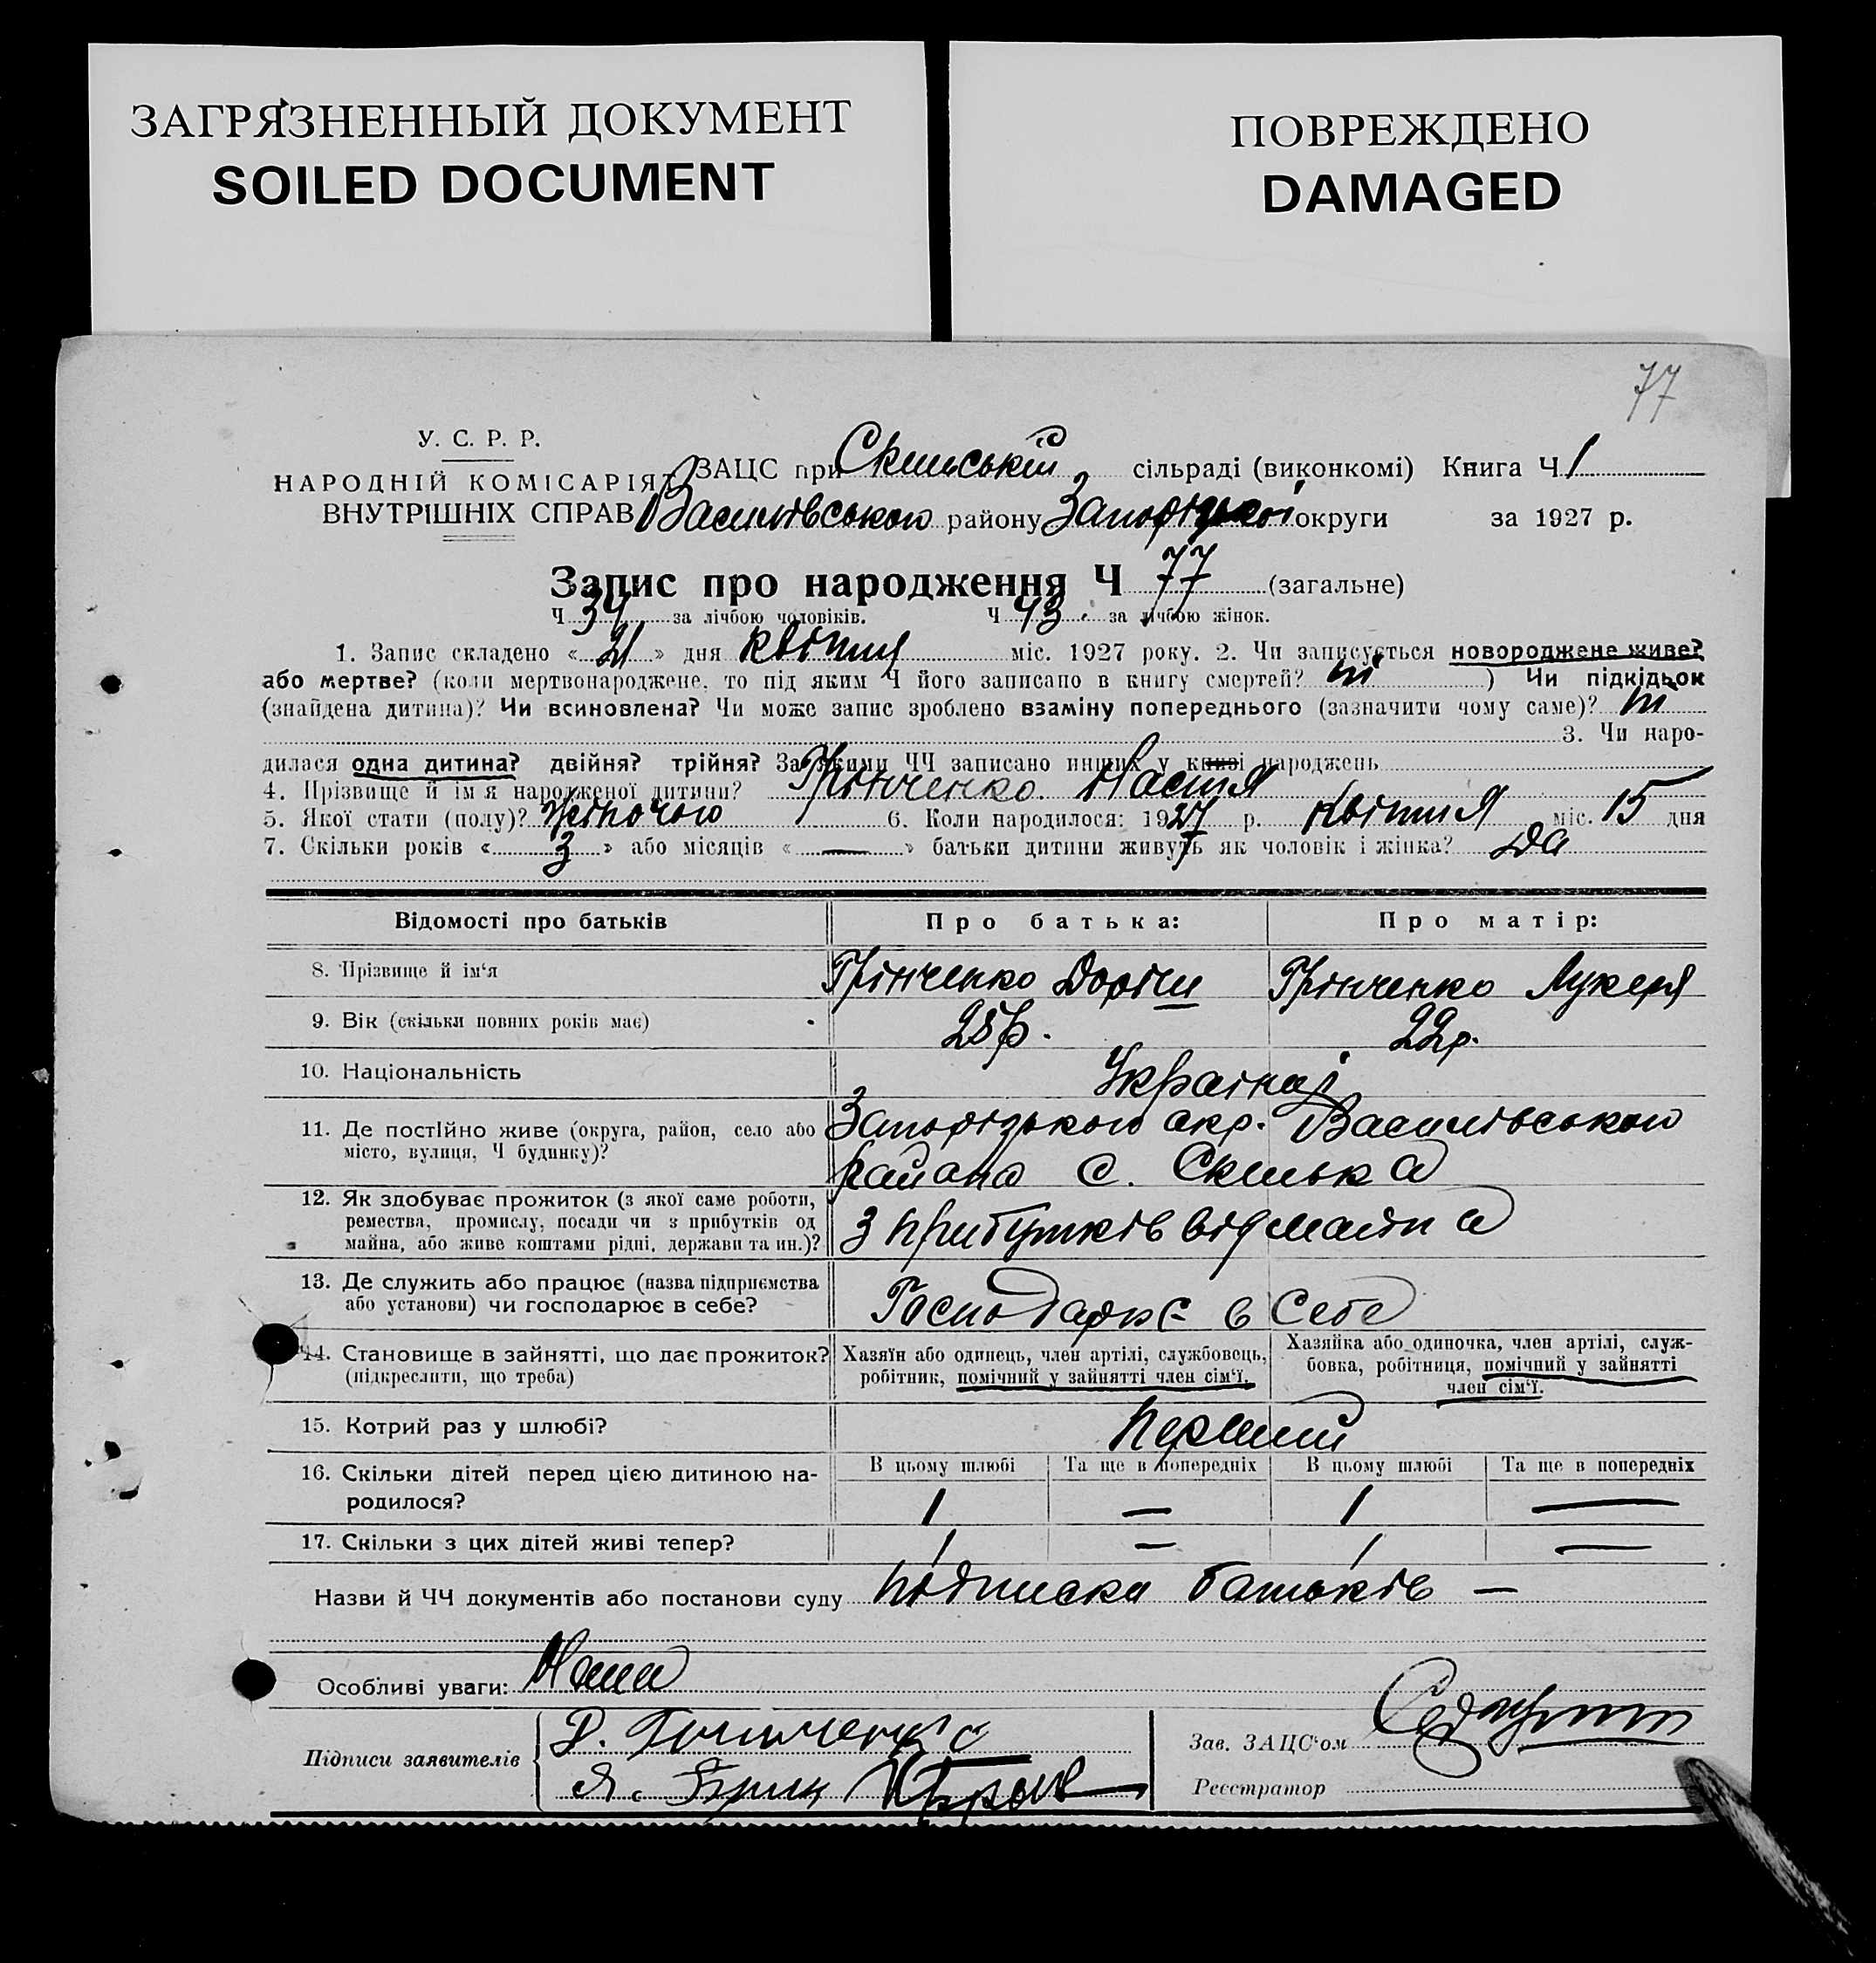 ЗАГРЯЗНЕННЫЙ ДОКУМЕНТ
SOILED DOCUMENT
ПОВРЕЖДЕНО
DAMAGED
77
У. С. Р. Р.
НАРОДНІЙ КОМІСАРІЯТ
ВНУТРІШНІХ СПРАВ
ЗАЦС при Скельській сільраді (виконкомі) Книга Ч 1
Василівського району Запорізької округи за 1927 р.
Запис про народження Ч 77 (загальне)
Ч 34 за лічбою чоловіків. Ч 43 за лічбою жінок.
1. Запис складено « 21 » дня квітня міс. 1927 року. 2. Чи записується новороджене живе?
або мертве? (коли мертвонароджене, то під яким Ч його записано в книгу смертей? ні ) Чи підкідьок
(знайдена дитина)? Чи всиновлена? Чи може запис зроблено взаміну попереднього (зазначити чому саме)? ні
3. Чи наро-
дилася одна дитина? двійня? трійня? За якими ЧЧ записано инших у книзі народжень
4. Прізвище й ім'я народженої дитини? Грінченко Настя
5. Якої стати (полу)? жіночою 6. Коли народилося: 1927 р. квітня міс. 15 дня
7. Скільки років « 3 » або місяців « — » батьки дитини живуть як чоловік і жінка? Да
Відомості про батьків Про батька: Про матір:
8. Прізвище й ім‘я Грінченко Грінченко Лукеря
9. Вік (скільки повних років має) 25 р. 22 р.
10. Національність
11. Де постійно живе (округа, район, село або Запорізького окр. Василівського
місто, вулиця, Ч будинку)? района с. Скелька
12. Як здобуває прожиток (з якої саме роботи,
ремества, промислу, посади чи з прибутків од
майна, або живе коштами рідні, держави та ин.)? З прибутків від маєтка
13. Де служить або працює (назва підприємства
або установи) чи господарює в себе? Господарює в Себе
14. Становище в зайнятті, що дає прожиток?
(підкреслити, що треба)
Хазяїн або одинець, член артілі, службовець,
робітник, помічний у зайнятті член сім‘ї.
Хазяйка або одиночка, член артілі, служ-
бовка, робітниця, помічний у зайнятті
член сім‘ї.
15. Котрий раз у шлюбі? Перший
16. Скільки дітей перед цією дитиною на-
родилося?
В цьому шлюбі Та ще в попередніх В цьому шлюбі Та ще в попередніх
1 — 1 —
17. Скільки з цих дітей живі тепер? 1 — 1 —
Назви й ЧЧ документів або постанови суду підписка батьків —
Особливі уваги:
Підписи заявителів
Зав. ЗАЦС‘ом
Реєстратор